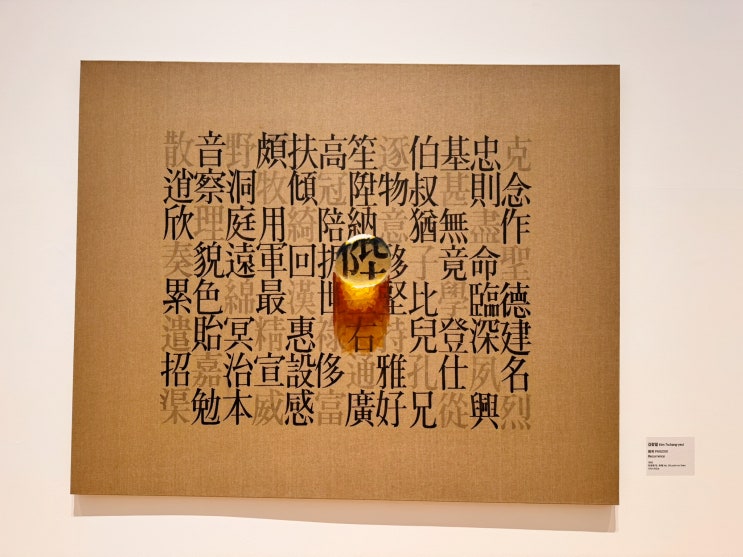 克念作聖德建名烈
忠則盡命臨深夙興
基甚無竟學登仕從
伯叔猶子比兒孔兄
逐物意移堅持雅好
笙陞納陛右通廣
高冠陪世祿侈富
扶傾綺回漢惠說感
頗牧用軍最精宣威
野洞庭遠綿冥治本
音察理貌色貽嘉勉
散逍欣奏累遣招渠
김창열 Kim Tschang-yeul
Recurrence